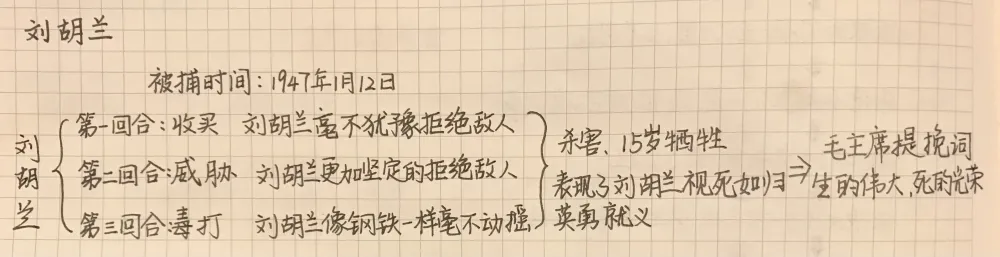 刘胡兰
被捕时间:1947年1月12日
刘胡兰
第一回合:收买 刘胡兰毫不犹豫拒绝敌人
第二回合:威胁 刘胡兰更加坚定的拒绝敌人
第三回合:毒打 刘胡兰像钢铁一样毫不动摇
杀害、15岁牺牲
表现了刘胡兰视死如归
英勇就义
⇒
毛主席提挽词
生的伟大,死的光荣